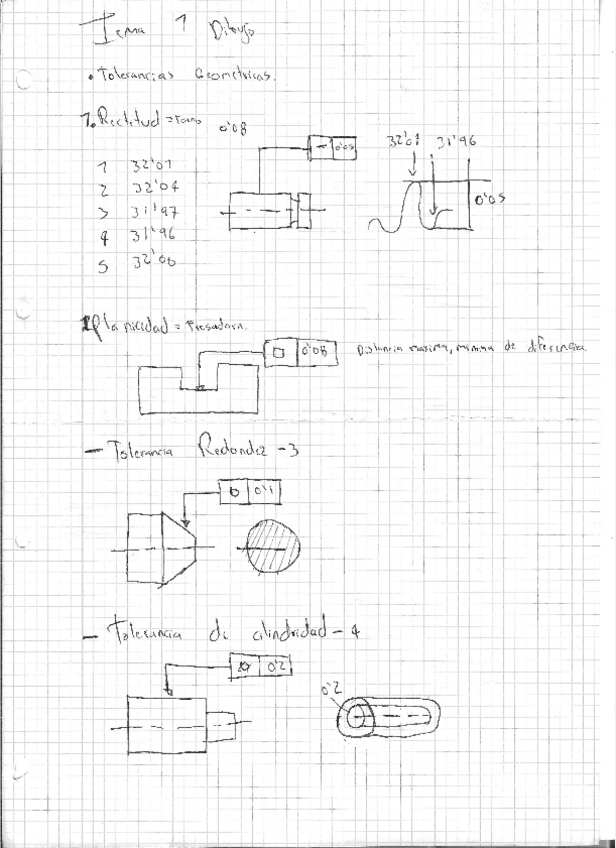 Tema 1 Dibujo
• Tolerancias Geometricas.
1. Rectitud = Torno 0'08
— 0'05
1 32'01
2 32'04
3 31'97
4 31'96
5 32'00
32'01 31'96
0'05
Planicidad = Fresadora.
0'08 Distancia maxima, minima de diferencia
— Tolerancia Redondez - 3
0'1
— Tolerancia de cilindridad - 4
0'2
0'2